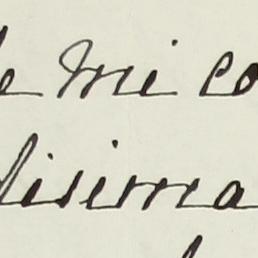 e mi co
lisima